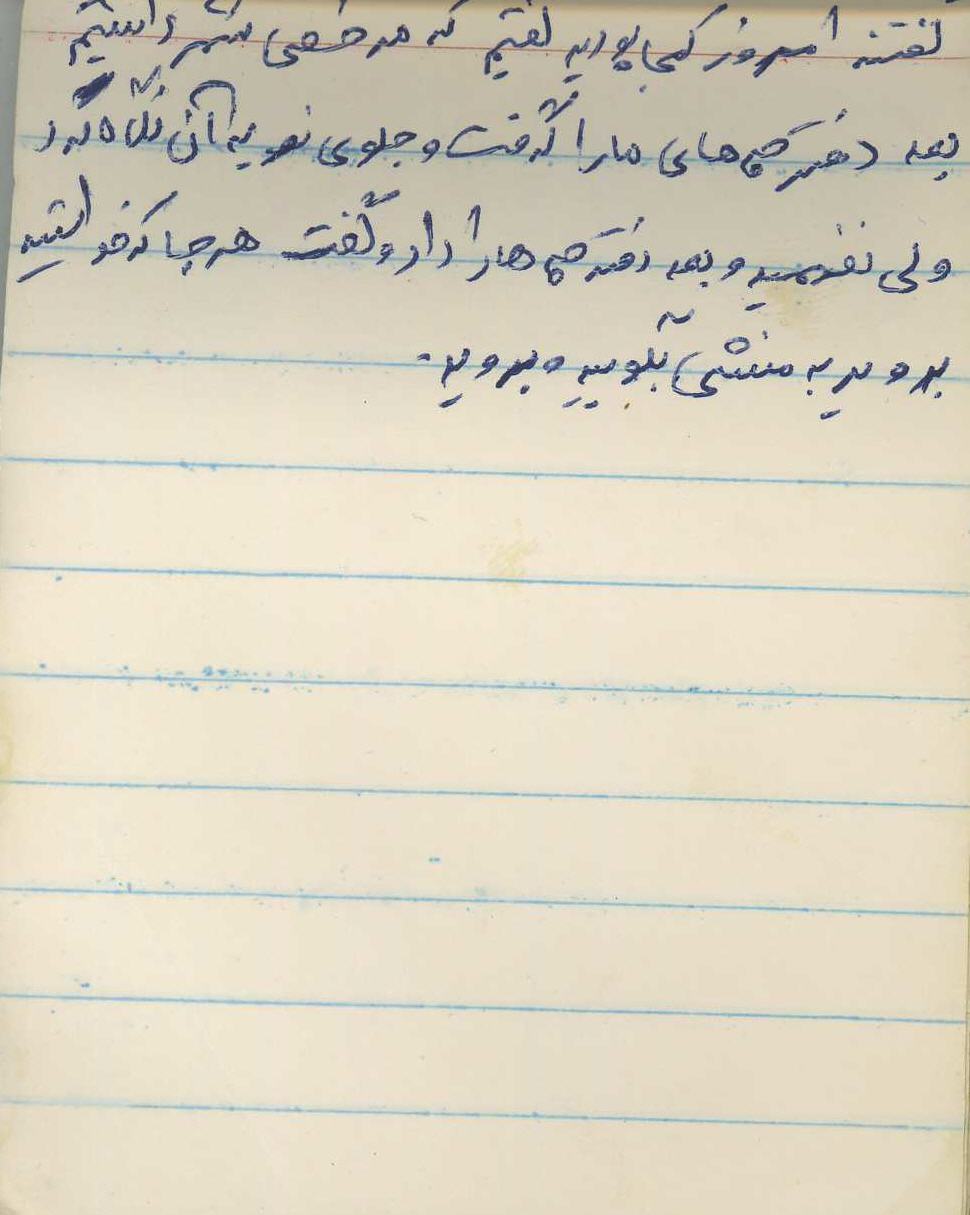 گفتند امروز کجا بودید گفتیم که مرخصی شهر داشتیم
بعد دفترچه‌های ما را گرفت و جلوی نور به آن نگاه کرد
ولی نفهمید و بعد دفترچه‌ها را داد و گفت هر جا که خواستید
بروید به منشی بگویید و بروید.